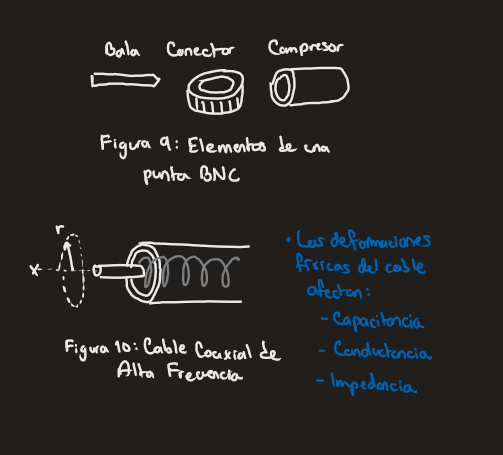 Bala Conector Compresor
Figura 9: Elementos de una
punta BNC
r
x
Figura 10: Cable Coaxial de
Alta Frecuencia
• Las deformaciones
físicas del cable
afectan:
- Capacitancia
- Conductancia
- Impedancia